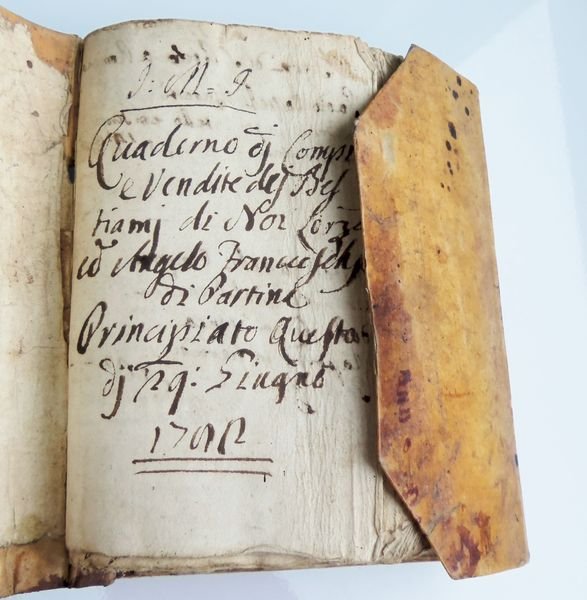 J. M. J.
Quaderno dj Compr
e Vendite dej Bes
tiamj di Noi Lorz
ed Angelo Franceschj
di Partina
Principiato Questo
dj Giugno